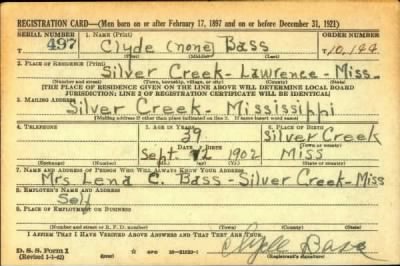 REGISTRATION CARD—(Men born on or after February 17, 1897 and on or before December 31, 1921)
SERIAL NUMBER 1. NAME (Print) ORDER NUMBER
497 Clyde (none) Bass 10,144
(First) (Middle) (Last)
2. PLACE OF RESIDENCE (Print)
Silver Creek - Lawrence - Miss.
(Number and street) (Town, township, village, or city) (County) (State)
[THE PLACE OF RESIDENCE GIVEN ON THE LINE ABOVE WILL DETERMINE LOCAL BOARD
JURISDICTION; LINE 2 OF REGISTRATION CERTIFICATE WILL BE IDENTICAL]
3. MAILING ADDRESS
Silver Creek - Mississippi
(Mailing address if other than place indicated on line 2. If same insert word same)
4. TELEPHONE 5. AGE IN YEARS 6. PLACE OF BIRTH
39 Silver Creek
DATE OF BIRTH (Town or county)
Sept. 12 1902 Miss
(Exchange) (Number) (Mo.) (Day) (Yr.) (State or country)
7. NAME AND ADDRESS OF PERSON WHO WILL ALWAYS KNOW YOUR ADDRESS
Mrs Lena C. Bass - Silver Creek - Miss
8. EMPLOYER'S NAME AND ADDRESS
Self
9. PLACE OF EMPLOYMENT OR BUSINESS
(Number and street or R. F. D. number) (Town) (County) (State)
I AFFIRM THAT I HAVE VERIFIED ABOVE ANSWERS AND THAT THEY ARE TRUE.
D. S. S. Form 1
(Revised 1-1-42) GPO 16—21630-1 Clyde Bass
(Registrant's signature)